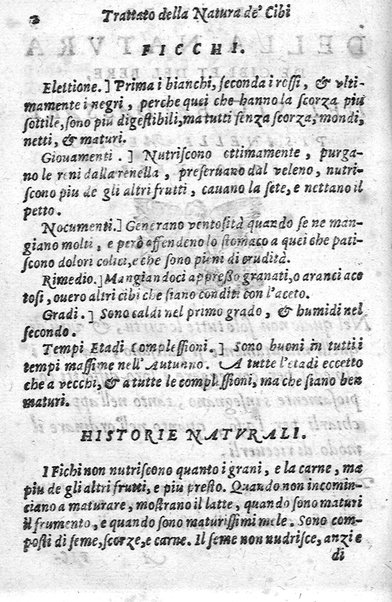 2 Trattato della Natura de' Cibi
FICCHI.
Elettione.] Prima i bianchi, seconda i rossi, & vlti-
mamente i negri, perche quei che hanno la scorza piu
sottile, sono piu digestibili, ma tutti senza scorza, mondi,
netti, & maturi.
Giouamenti.] Nutriscono ottimamente, purga-
no le reni dalla renella, preseruano dal veleno, nutri-
scono piu de gli altri frutti, cauano la sete, e nettano il
petto.
Nocumenti.] Generano ventosità quando se ne man-
giano molti, e però offendeno lo stomaco a quei che pati-
scono dolori colici, e che sono pieni di crudità.
Rimedio.] Mangiandoci appresso granati, o aranci ace
tosi, ouero altri cibi che siano conditi con l'aceto.
Gradi.] Sono caldi nel primo grado, & humidi nel
secondo.
Tempi Etadi Complessioni.] Sono buoni in tutti i
tempi massime nell'Autunno. A tutte l'etadi eccetto
che a vecchi, & a tutte le complessioni, ma che siano ben
maturi.
HISTORIE NATVRALI.
I Fichi non nutriscono quanto i grani, e la carne, ma
piu de gli altri frutti, e piu presto. Quando non incomin-
ciano a maturare, mostrano il latte, quando sono maturi
il frumento, e quando sono maturissimi mele. Sono com-
posti di seme, scorze, e carne. Il seme non nudrisce, anzi e
di